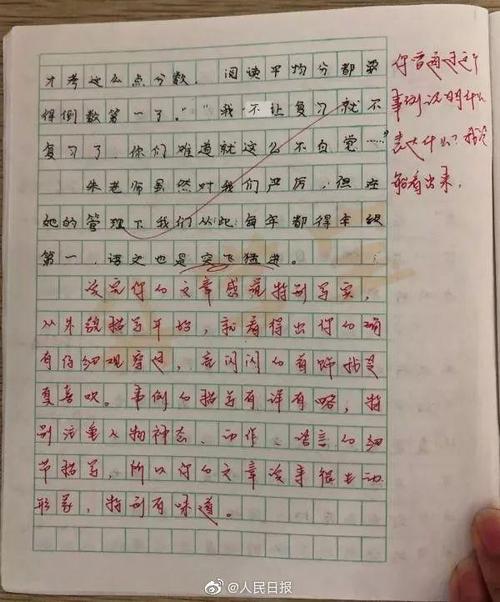 才考这么点分数，阅读平均分都要
得倒数第一了。""我不让复习就不
复习了，你们难道就这么不自觉……"
朱老师虽然对我们严厉，但在
她的管理下我们从此每年都得年级
第一，语文也是突飞猛进。
读完你的文章感觉特别写实，
从外貌描写开始，就看得出你的确
有仔细观察过，亮闪闪的首饰我是
更喜欢。事例的描写有详有略，特
别注重人物神态、动作、语言的细
节描写，所以你的文章读来很生动
形象，特别有味道。
你曾通过这个
事例说明什么
表达什么？我没
能看出来。
@人民日报